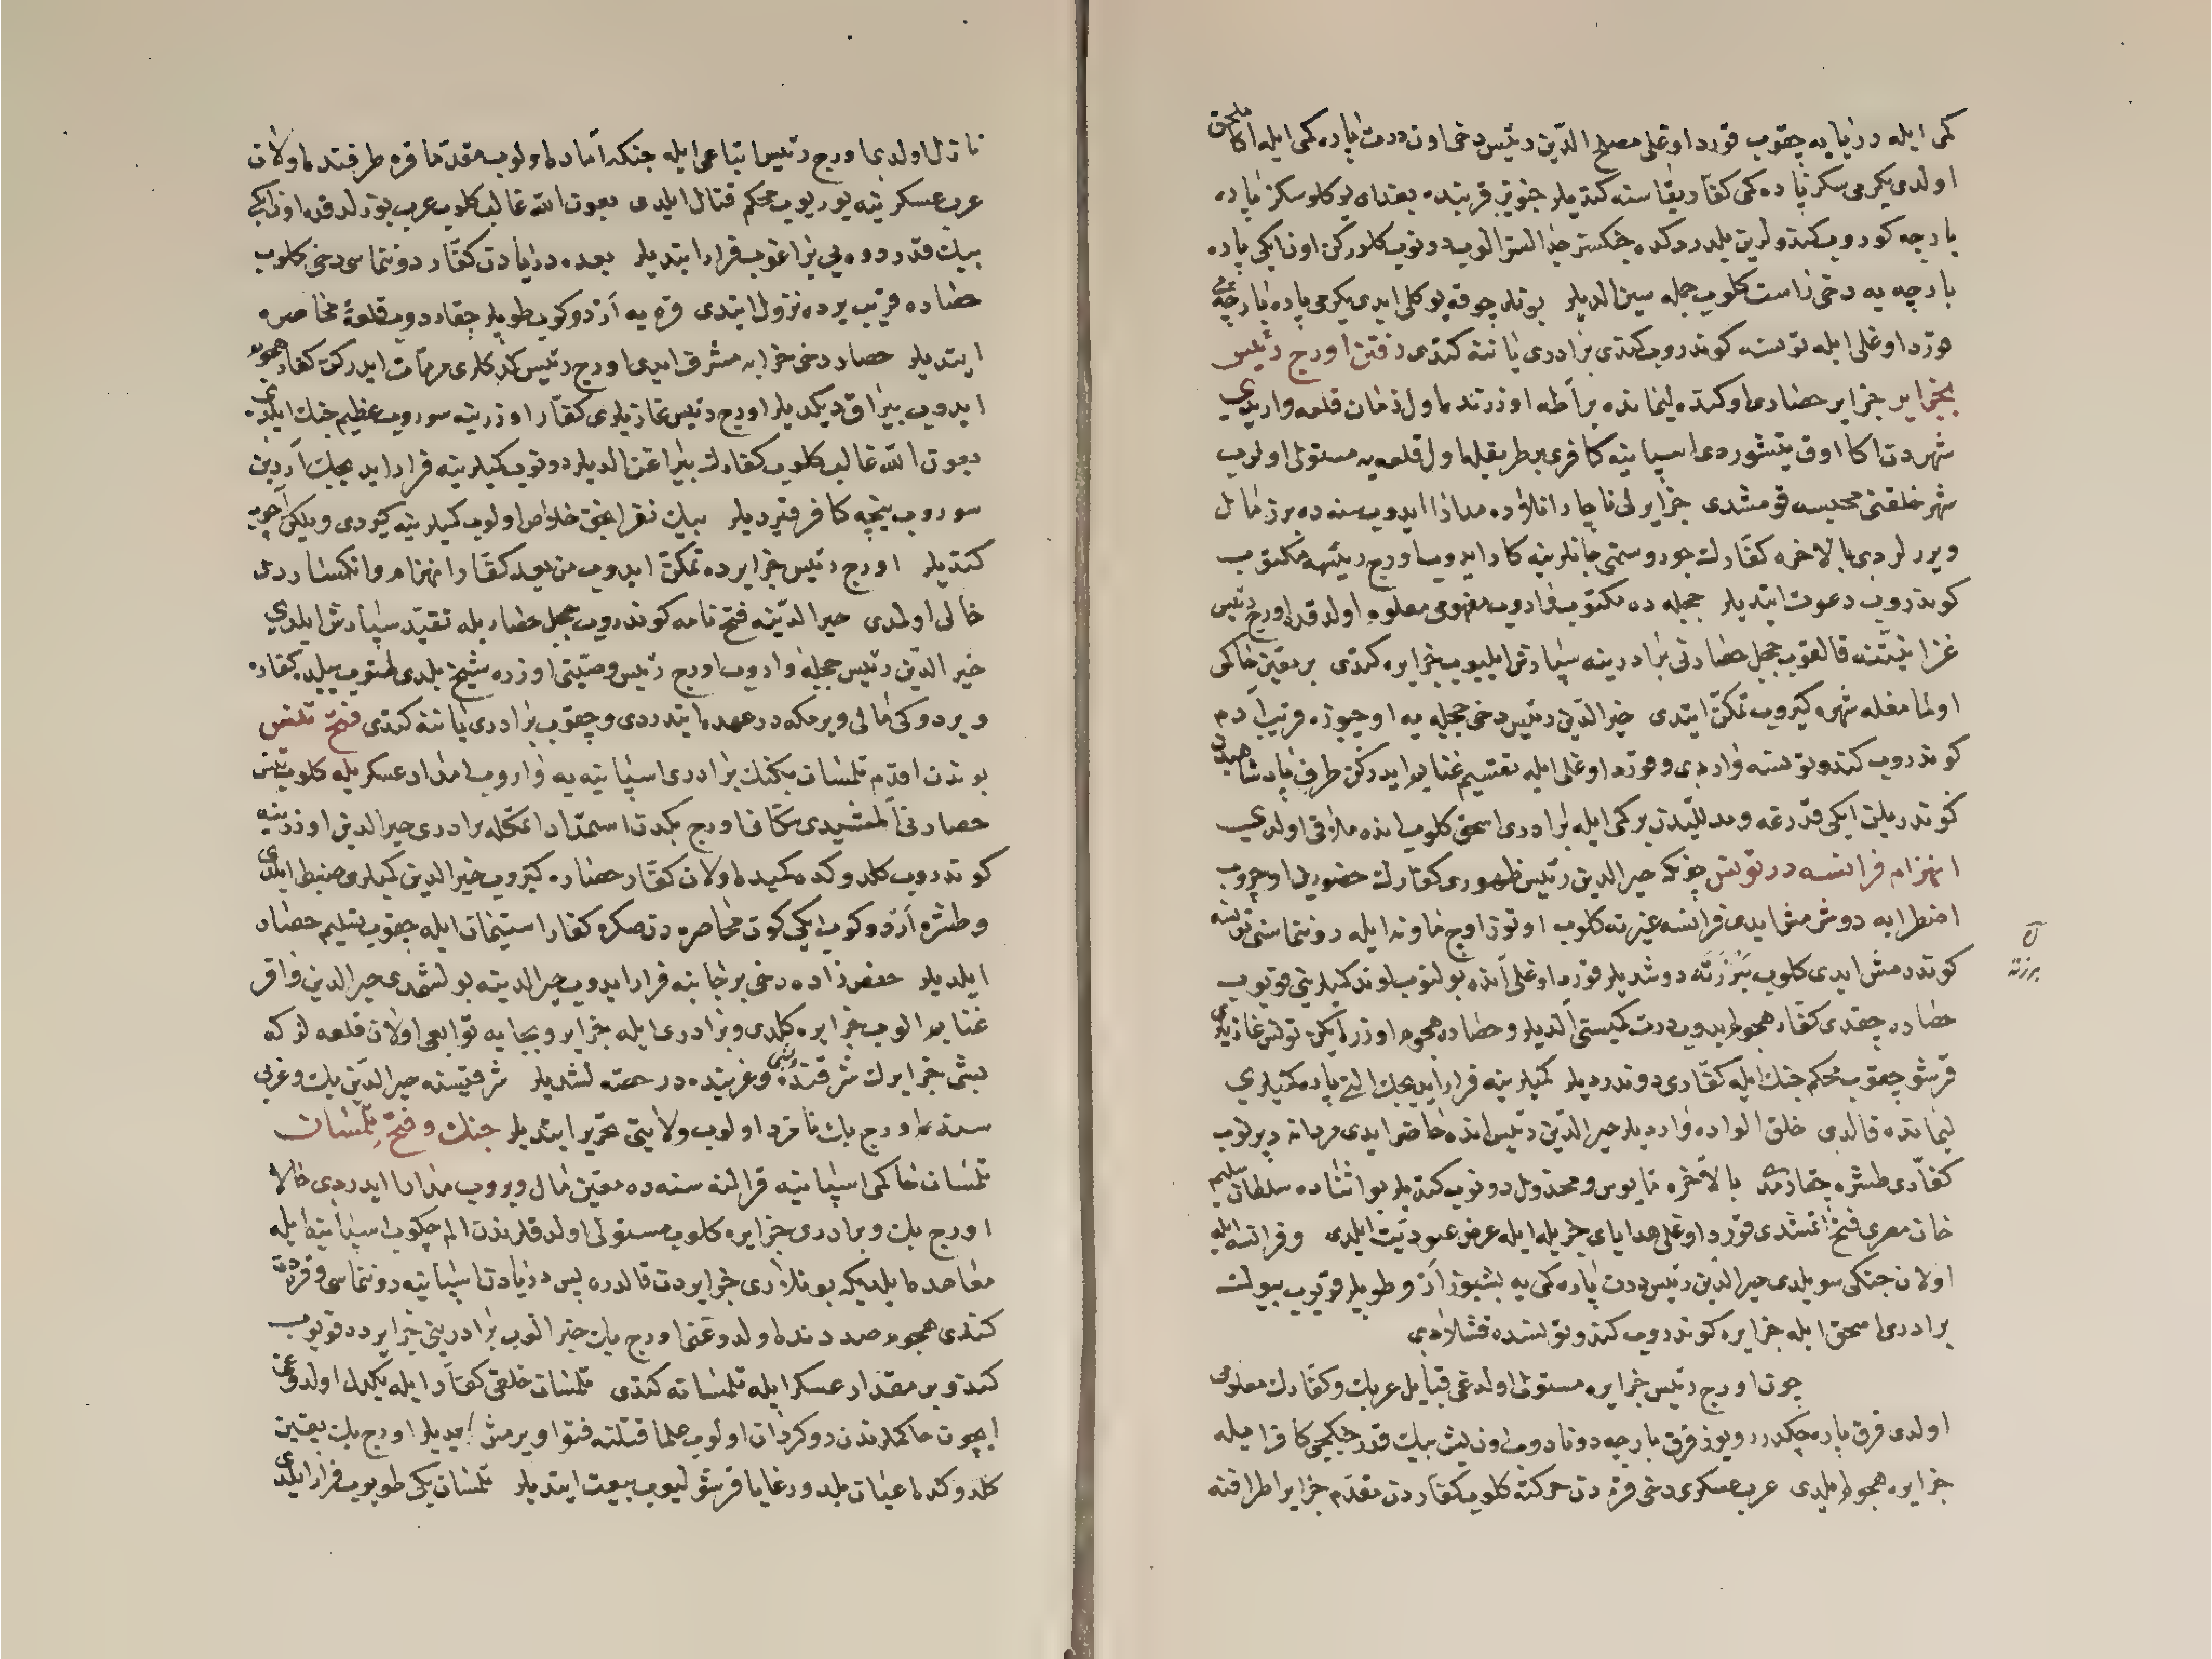 كمی ایله دریایه چقوب قورد اوغلی مصلح الدین رئیس دخی اون درت پاره كمی ایله اكا ملحق
اولدی یكرمی سكز پاره كمی كفار یقاسنه كتدیلر جنویز قربنده بغدای یوكلو سكز پاره
بارچه كوروب كندولرین یلدردكده جنكسز جدالسز الوب دونوب كلوركن اون ایكی پاره
بارچه یه دخی راست كلوب جمله سین الدیلر بونلر چوقه یوكلی ایدی یكرمی پاره بارچه یی
قورد اوغلی ایله تونسه كوندروب كندی برادری یاننه كتدی رفتن اورج رئیس
بجزایر جزایر حصاری اوكنده لیماننده بر اطه اوزرنده اول زمان قلعه وار ایدی
شهردن اكا اوق یتشوردی اسپانیه كافری بر طریقله اول قلعه یه مستولی اولوب
شهر خلقنی محبسه قومشدی جزایرلی ناچار انلارده مدارا ایدوب سنه ده برر مال
ویررلردی بالاخره كفارك جور و ستمی جانلرینه كار ایدوب اورج رئیسه مكتوب
كوندروب دعوت ایتدیلر ججله ده مكتوب واروب مفهومی معلوم اولدقده اورج رئیس
غزا نیتنه قالقوب ججل حصارنی برادرینه سپارش ایلیوب جزایره كتدی بر معین حاكمی
اولمامغله شهره كیروب تمكن ایتدی خیرالدین رئیس دخی ججله یه اوچیوزه قریب آدم
كوندروب كندو تونسه واردی و قورد اوغلی ایله تقسیم غنایم ایدركن طرف پادشاهیدن
كوندریلن ایكی قدرغه و مدللیدن بر كمی ایله برادری اسحق كلوب انده ملاقی اولدی
انهزام فرانسه در تونس چونكه خیرالدین رئیس ظهوری كفارك حضورین اوچوروب
اضطرابه دوشرمش ایدی فرانسه غیرته كلوب اوتوز اوچ قاوند ایله دوننماسنی تونسه
كوندرمش ایدی كلوب بنزرته دوشدیلر قورد اوغلی آنده بولنوب لوند كمیلرینی قویوب
حصاره چقدی كفار هجوم ایدوب درت كمیسنی الدیلر و حصاره هجوم اوزره ایكن تونس غازیلری
قرشو چقوب محكم جنك ایله كفاری دوندردیلر كمیلرینه فرار ایدیجك التی پاره كمیلری
لیمانده قالدی خلق الواده واردیلر خیرالدین رئیس انده حاضر ایدی مردانه دیرلوب
كفاری طشره چقارمدی بالآخره مایوس و مخذول دونوب كتدیلر بو اثناده سلطان سلیم
خان مصری فتح اتمشدی قورد اوغلی هدایای جزیله ایله عرض عبودیت ایلدی و فرانسه ایله
اولان جنكی سویلدی خیرالدین رئیس درت پاره كمی یه بشیوز آدم و طوپلر قویوب بیوك
برادری اسحق ایله جزایره كوندروب كندو تونسده قشلادی
چون اورج رئیس جزایره مستولی اولدغی قبایل عربك و كفارك معلومی
اولدی قرق پاره چكدرر و یوز قرق بارچه دونادوب اون بش بیك قدر جنكجی كافر ایله
جزایره هجوم ایلدی عرب عسكری دخی قره دن حركته كلوب كفاردن مقدم جزایر اطرافنه
ح
بنزرته
نازل اولدی اورج رئیس اتباعی ایله جنكه آماده اولوب مقدما قره طرفنده اولان
عرب عسكرینه یوریوب محكم قتال ایلدی بعون الله غالب كلوب عرب بوزلدقده اون ایكی
بیك قدر دوه یی براغوب فرار ایتدیلر بعده دریادن كفار دوننماسی دخی كلوب
حصاره قریب یرده نزول ایتدی قره یه آدم دوكوب طوپلر چقاردوب قلعه یی محاصره
ایتدیلر حصار دخی خرابه مشرف ایدی اورج رئیس كدكلری مرمات ایدركن كفار هجوم
ایدوب بیراق دیكدیلر اورج رئیس غازیلری كفار اوزرینه سوروب عظیم جنك ایلدی
بعون الله غالب كلوب كفارك بیراغن الدیلر دونوب كمیلرینه فرار ایدیجك آردین
سوروب نیچه كافر قیردیلر بیك نفر انجق خلاص اولوب كمیلرینه كیردی و یلكن آچوب
كتدیلر اورج رئیس جزایرده تمكن ایدوب من بعد كفار انهزام و انكساردن
خالی اولمدی خیرالدینه فتح نامه كوندروب ججل حصاریله تقید سپارش ایلدی
خیرالدین رئیس ججله واروب اورج رئیس وصیتی اوزره شیخ یلدی طتوب ییلده كفاره
ویردوكی مالی ویرمكه در عهده ایتدردی و چقوب برادری یاننه كتدی فتح تنس
بوندن اقدم تلمسان بكنك برادری اسپانیه یه واروب امداد عسكریله كلوب تنس
حصارنی آلمشیدی مكافی اورج بكدن استمداد اتمكله برادری خیرالدین اوزرینه
كوندروب كلدوكده كمیده اولان كفار حصاره كیروب خیرالدین كمیلری ضبط ایلدی
و طشره آدم دوكوب ایكی كون محاصره دن صكره كفار استیمان ایله چقوب تسلیم حصار
ایلدیلر حفص زاده دخی بر جانبه فرار ایدوب خیرالدینه بولشمدی خیرالدین وافر
غنایم الوب جزایره كلدی و برادری ایله جزایر و بجایه توابعی اولان قلعه لركه
بشی جزایرك شرقنده و بشی غربنده در حصه لشدیلر شرقیسنه خیرالدین بك و غربی
سنه اورج بك نامزد اولوب ولایتی تحریر ایتدیلر جنك و فتح تلمسان
تلمسان حاكمی اسپانیه قرالنه سنه ده معین مال ویروب مدارا ایدردی حالا
اورج بك و برادری جزایره كلوب مستولی اولدقلرندن الم چكوب اسپانیه ایله
معاهده ایلدیكه بونلری جزایردن قالدره پس دریادن اسپانیه دوننماسی و قره دن
كندی هجوم صددنده اولدوغنی اورج بك خبر الوب برادرینی جزایرده قویوب
كندو بر مقدار عسكر ایله تلمسانه كتدی تلمسان خلقی كفار ایله یكدل اولدوغی
ایچون حاكملرندن دوكردان اولوب علما قتلنه فتوا ویرمش ایدیلر اورج بك یقین
كلدوكده اعیان بلد و رعایا قرشو كلیوب بیعت ایتدیلر تلمسان بكی طویوب فرار ایلدی